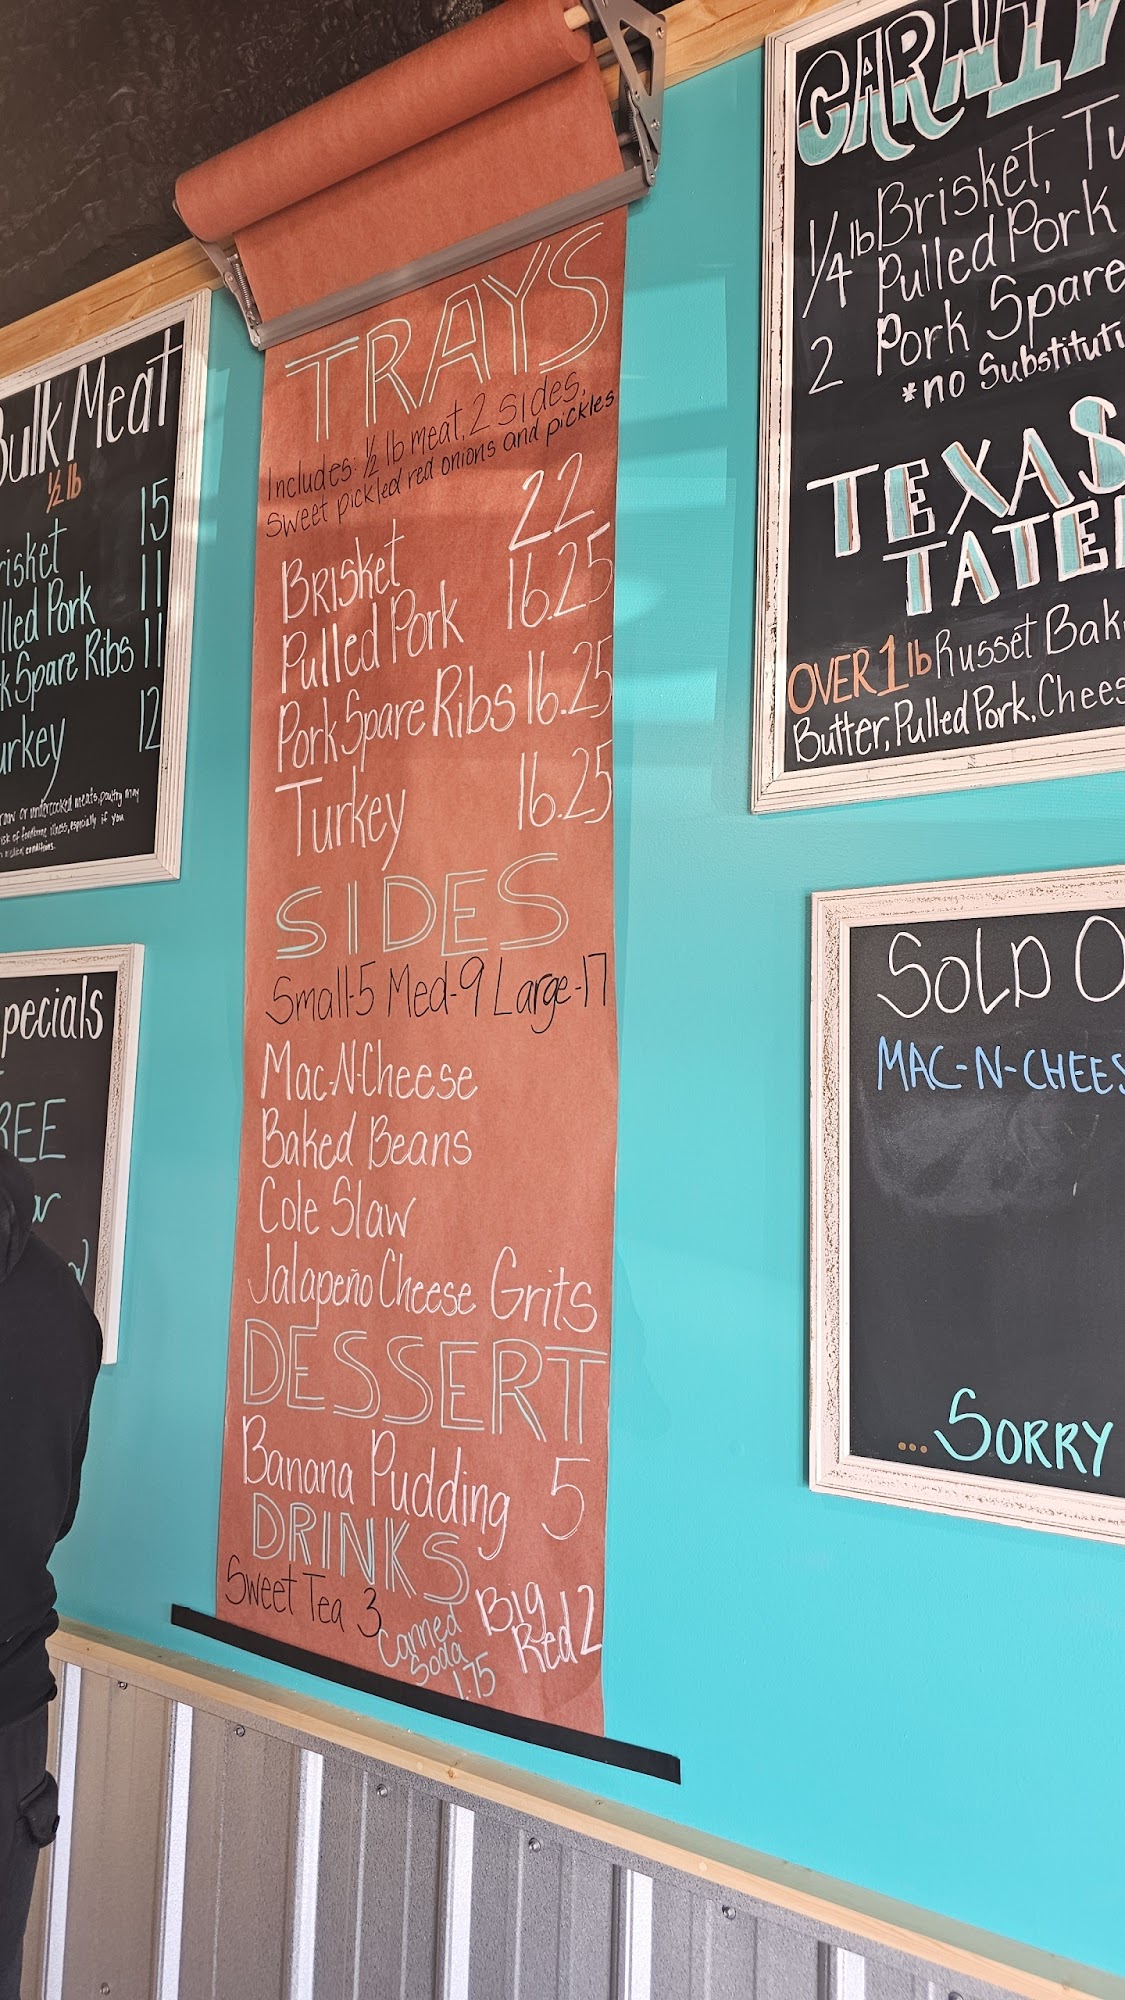 Bulk Meat
1/2 lb
15
lled Pork 11
Spare Ribs 11
12
raw or undercooked meats, poultry may
risk of foodborne illness, especially if you
conditions.
pecials
TRAYS
Includes: 1/2 lb meat, 2 sides,
Sweet pickled red onions and pickles
Brisket 22
Pulled Pork 16.25
Pork Spare Ribs 16.25
Turkey 16.25
SIDES
Small-5 Med-9 Large-17
Mac-N-Cheese
Baked Beans
Cole Slaw
Jalapeño Cheese Grits
DESSERT
Banana Pudding 5
DRINKS
Sweet Tea 3
Canned
Soda
1.75
Big
Red 2
1/4 lb Brisket, Tu
Pulled Pork
2 Pork Spare
*no Substituti
TEXAS
TATE
OVER 1 lb Russet Bak
Butter, Pulled Pork, Chees
SOLD O
MAC-N-CHEES
... SORRY